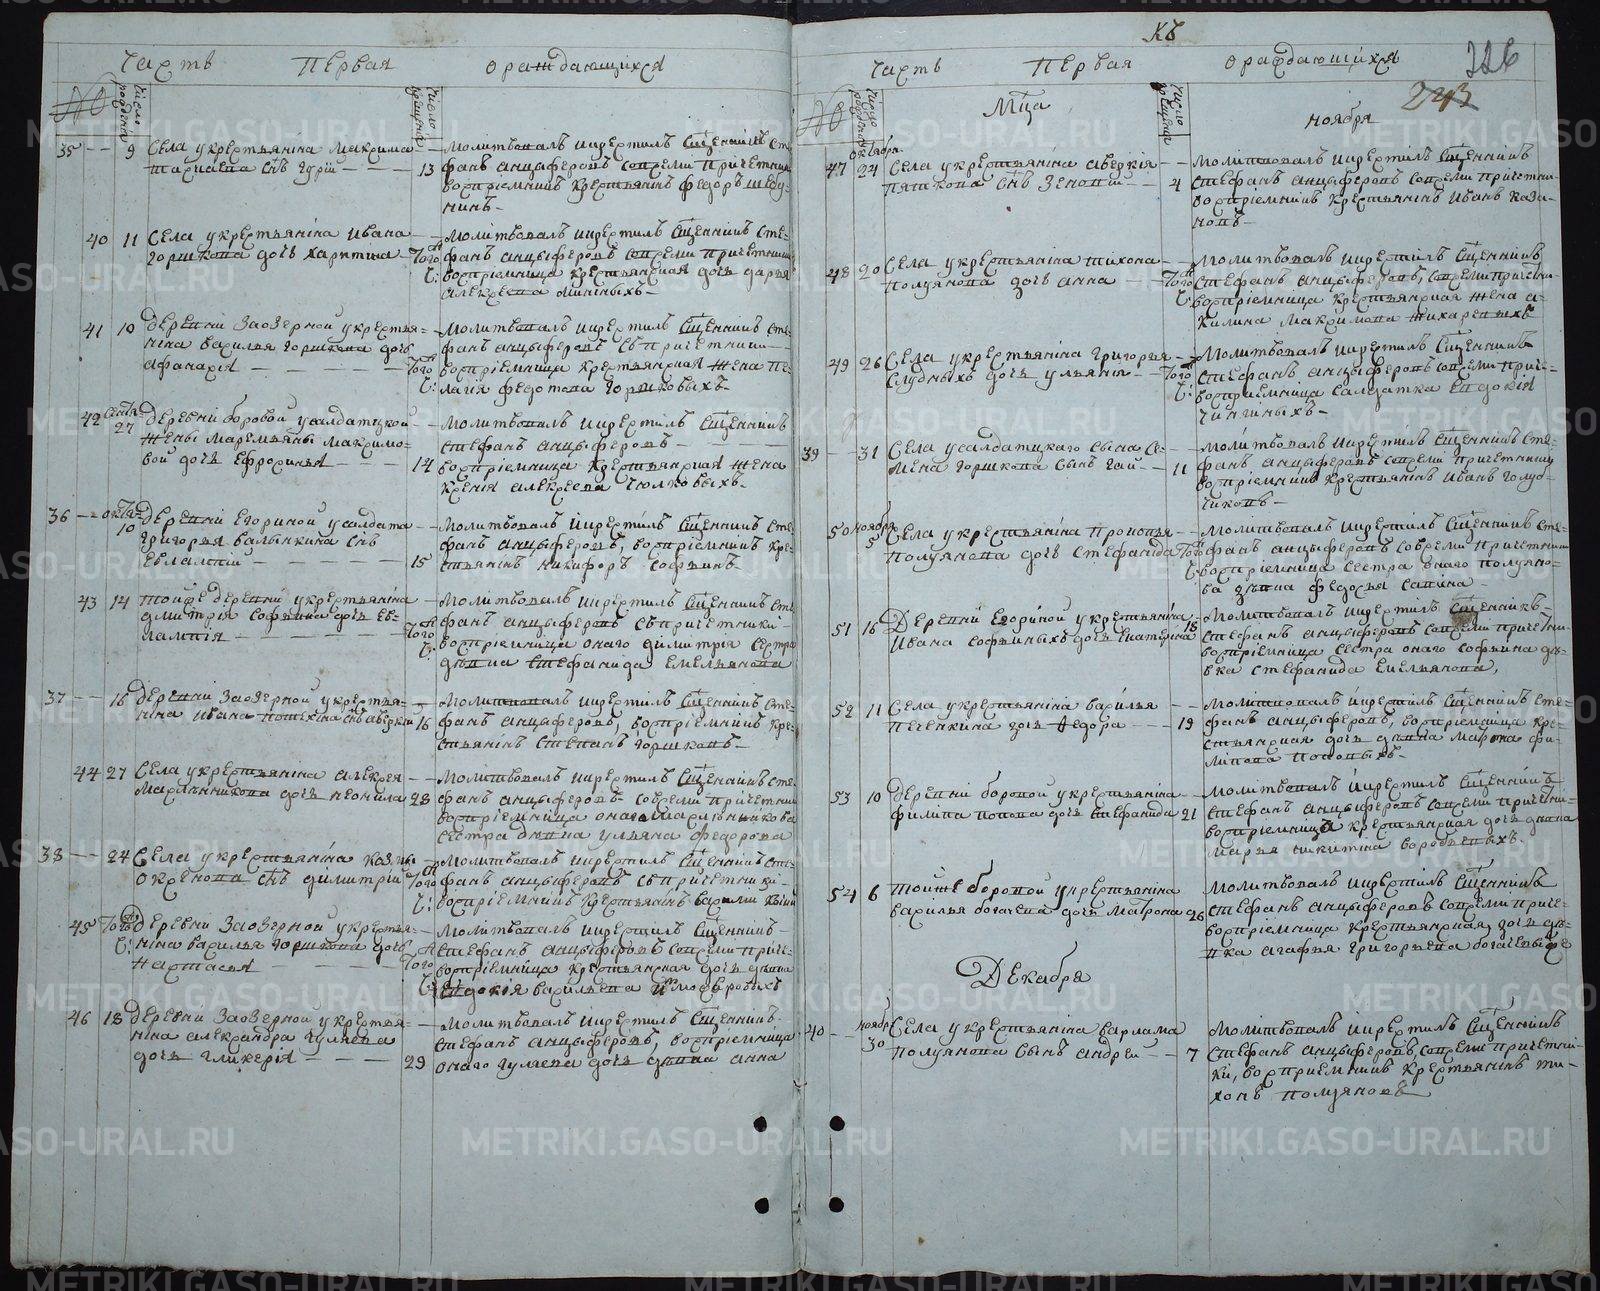 Часть Первая ораждающихся
№
число рождения
число крещения
35 -- 9 Села укрестьянина максима
тарасева снъ гурій 13
Молитвовалъ икрестилъ Сщенникъ Сте
фанъ анцыферовъ совсеми Причетники
воспріемникъ крестьянинъ федоръ
нинъ
40 11 Села укрестьянина ивана
горшкова дочь харитина Того Ч:
Молитвовалъ икрестилъ Сщенникъ Сте-
фанъ анцыферовъ совсеми Причетники
воспріемница крестьянская дочь дарья
алексеева
41 10 деревни Заозерной укрестья-
нина василья горшкова дочь
афанасія Того Ч:
Молитвовалъ икрестилъ Сщенникъ Сте
фанъ анцыферовъ съ причетники
воспріемница крестьянская жена Пе-
лагія федотова горшковыхъ
42 Сентя 27 деревни боровой усалдатской
жены маремьяны максимо-
вой дочь ефросинья 14
Молитвовалъ икрестилъ Сщенникъ
Стефанъ анцыферовъ
воспріемница крестьянская жена
ксенія алексеева чюлковыхъ
36 -- октя 10 деревни Егориной усалдата
григорья валынкина снъ
Евлампій 15
Молитвовалъ икрестилъ Сщенникъ Сте
фанъ анцыферовъ, воспріемникъ кре-
стьянинъ никифоръ софьинъ
43 14 тойже деревни укрестьянина
димитрія софьина дочь ев-
лампія Того Ч:
Молитвовалъ икрестилъ Сщенникъ Сте
фанъ анцыферовъ съ причетники
воспріемница онаго димитрія сестра
девка Стефанида Емельянова
37 -- 16 деревни Заозерной укрестья-
нина ивана потехина снъ аверкій 16
Молитвовалъ икрестилъ Сщенникъ Сте
фанъ анцыферовъ, воспріемникъ кре-
стьянинъ Степанъ горшковъ
44 27 Села укрестьянина алексея
марлынникова дочь неонила 28
Молитвовалъ икрестилъ Сщенникъ сте
фанъ анцыферовъ совсеми причетники
воспріемница онаго
сестра девка ульяна федорова
38 -- 24 Села укрестьянина
оксенова снъ димитрій Того Ч:
Молитвовалъ икрестилъ Сщенникъ Сте-
фанъ анцыферовъ съ причетники
воспріемникъ крестьянинъ
45 Того Ч: деревни Заозерной укрестья-
нина василья горшкова дочь
настасья Того Ч:
Молитвовалъ икрестилъ Сщенникъ
Стефанъ анцыферовъ совсеми приче-
воспріемница крестьянская дочь девка
Евдокія васильева
46 18 деревни Заозерной укрестья-
нина александра гуляева
дочь гликерія 29
Молитвовалъ икрестилъ Сщенникъ
Стефанъ анцыферовъ, воспріемница
онаго гуляева дочь девка анна
КЪ
Часть Первая ораждающихся
226
243
№
число рождения
Мца
число крещения
ноября
октября
47 24 Села укрестьянина аверкія
пяткова снъ Зеновій 4
Молитвовалъ икрестилъ Сщенникъ
Стефанъ анцыферовъ совсеми Причетни-
воспріемникъ крестьянинъ иванъ каза-
новъ
48 20 Села укрестьянина тихона
полуянова дочь анна Того Ч:
Молитвовалъ икрестилъ Сщенникъ
Стефанъ анцыферовъ, совсеми причетни-
воспріемница крестьянская жена а-
килина максимова
49 26 Села укрестьянина григорья
Слудныхъ дочь ульянія Того Ч:
Молитвовалъ икрестилъ Сщенникъ
Стефанъ анцыферовъ совсеми приче-
воспріемница салдатка Евдокія
39 -- 31 Села усалдатскаго сына Се-
мена горшкова сынъ гаій 11
Молитвовалъ икрестилъ Сщенникъ Сте-
фанъ анцыферовъ совсеми причетники
воспріемникъ крестьянинъ иванъ голуб-
чиковъ
50 ноября 5 Села укрестьянина Прокопья
полуянова дочь Стефанида Того Ч:
Молитвовалъ икрестилъ Сщенникъ Сте-
фанъ анцыферовъ совсеми Причетники
воспріемница сестра онаго полуяно-
ва девка федосья савина
51 16 Деревни Егориной укрестьянина
ивана софьиныхъ дочь екатерина 18
Молитвовалъ икрестилъ Сщенникъ
Стефанъ анцыферовъ совсеми причетни-
воспріемница сестра онаго софьина де-
вка стефанида Емельянова,
52 11 Села укрестьянина василья
печенкина дочь федора 19
Молитвовалъ икрестилъ Сщенникъ Сте-
фанъ анцыферовъ, воспріемница кре-
стьянская дочь девка марфа фи-
липова поповыхъ
53 10 деревни боровой укрестьянина
филипа попова дочь Стефанида 21
Молитвовалъ икрестилъ Сщенникъ
Стефанъ анцыферовъ совсеми причетни-
воспріемница крестьянская дочь девка
марья никитина воробьевыхъ
54 6 тойже боровой укрестьянина
василья богачева дочь матрона 26
Молитвовалъ икрестилъ Сщенникъ
Стефанъ анцыферовъ совсеми приче-
воспріемница крестьянская дочь де-
вка агафья григорьева богачевыхъ
Декабря
40 -- ноября 30 Села укрестьянина варлама
полуянова сынъ андрей 7
Молитвовалъ икрестилъ Сщенникъ
Стефанъ анцыферовъ, совсеми причетни-
ки, воспріемникъ крестьянинъ ти-
хонъ полуяновъ
METRIKI.GASO-URAL.RU